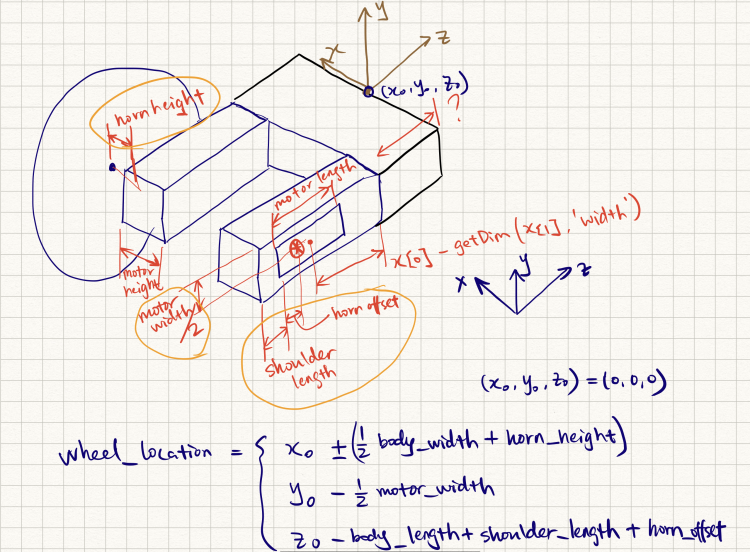 y
z
x
(x₀, y₀, z₀)
horn height
?
motor length
x[0] - getDim(x[1], 'width')
motor
height
motor
width
/2
horn offset
shoulder
length
x y z
(x₀, y₀, z₀) = (0, 0, 0)
wheel_location = { x₀ ± (½ body_width + horn_height)
y₀ - ½ motor_width
z₀ - body_length + shoulder_length + horn_offset